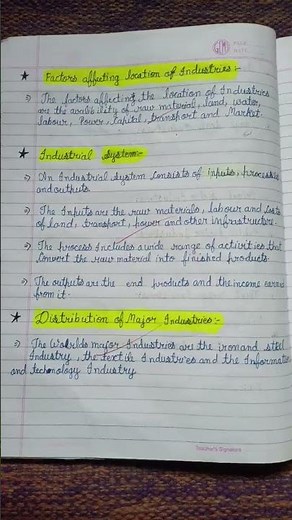 PAGE
DATE
★ Factors affecting location of Industries :-
The factors affecting the location of Industries
are the availability of raw material, land, water,
labour, Power, Capital, transport and Market.
★ Industrial System :-
An Industrial System Consists of inputs, processes
and outputs.
The Inputs are the raw materials, labour and Costs
of land, transport, power and other infrastructure.
The Process Includes a wide range of activities that
Convert the raw material into finished products.
The outputs are the end products and the income earned
from it.
★ Distribution of Major Industries :-
The World's major Industries are the iron and steel
Industry, the textile Industries and the Information
and Technology Industry.
Teacher's Signature